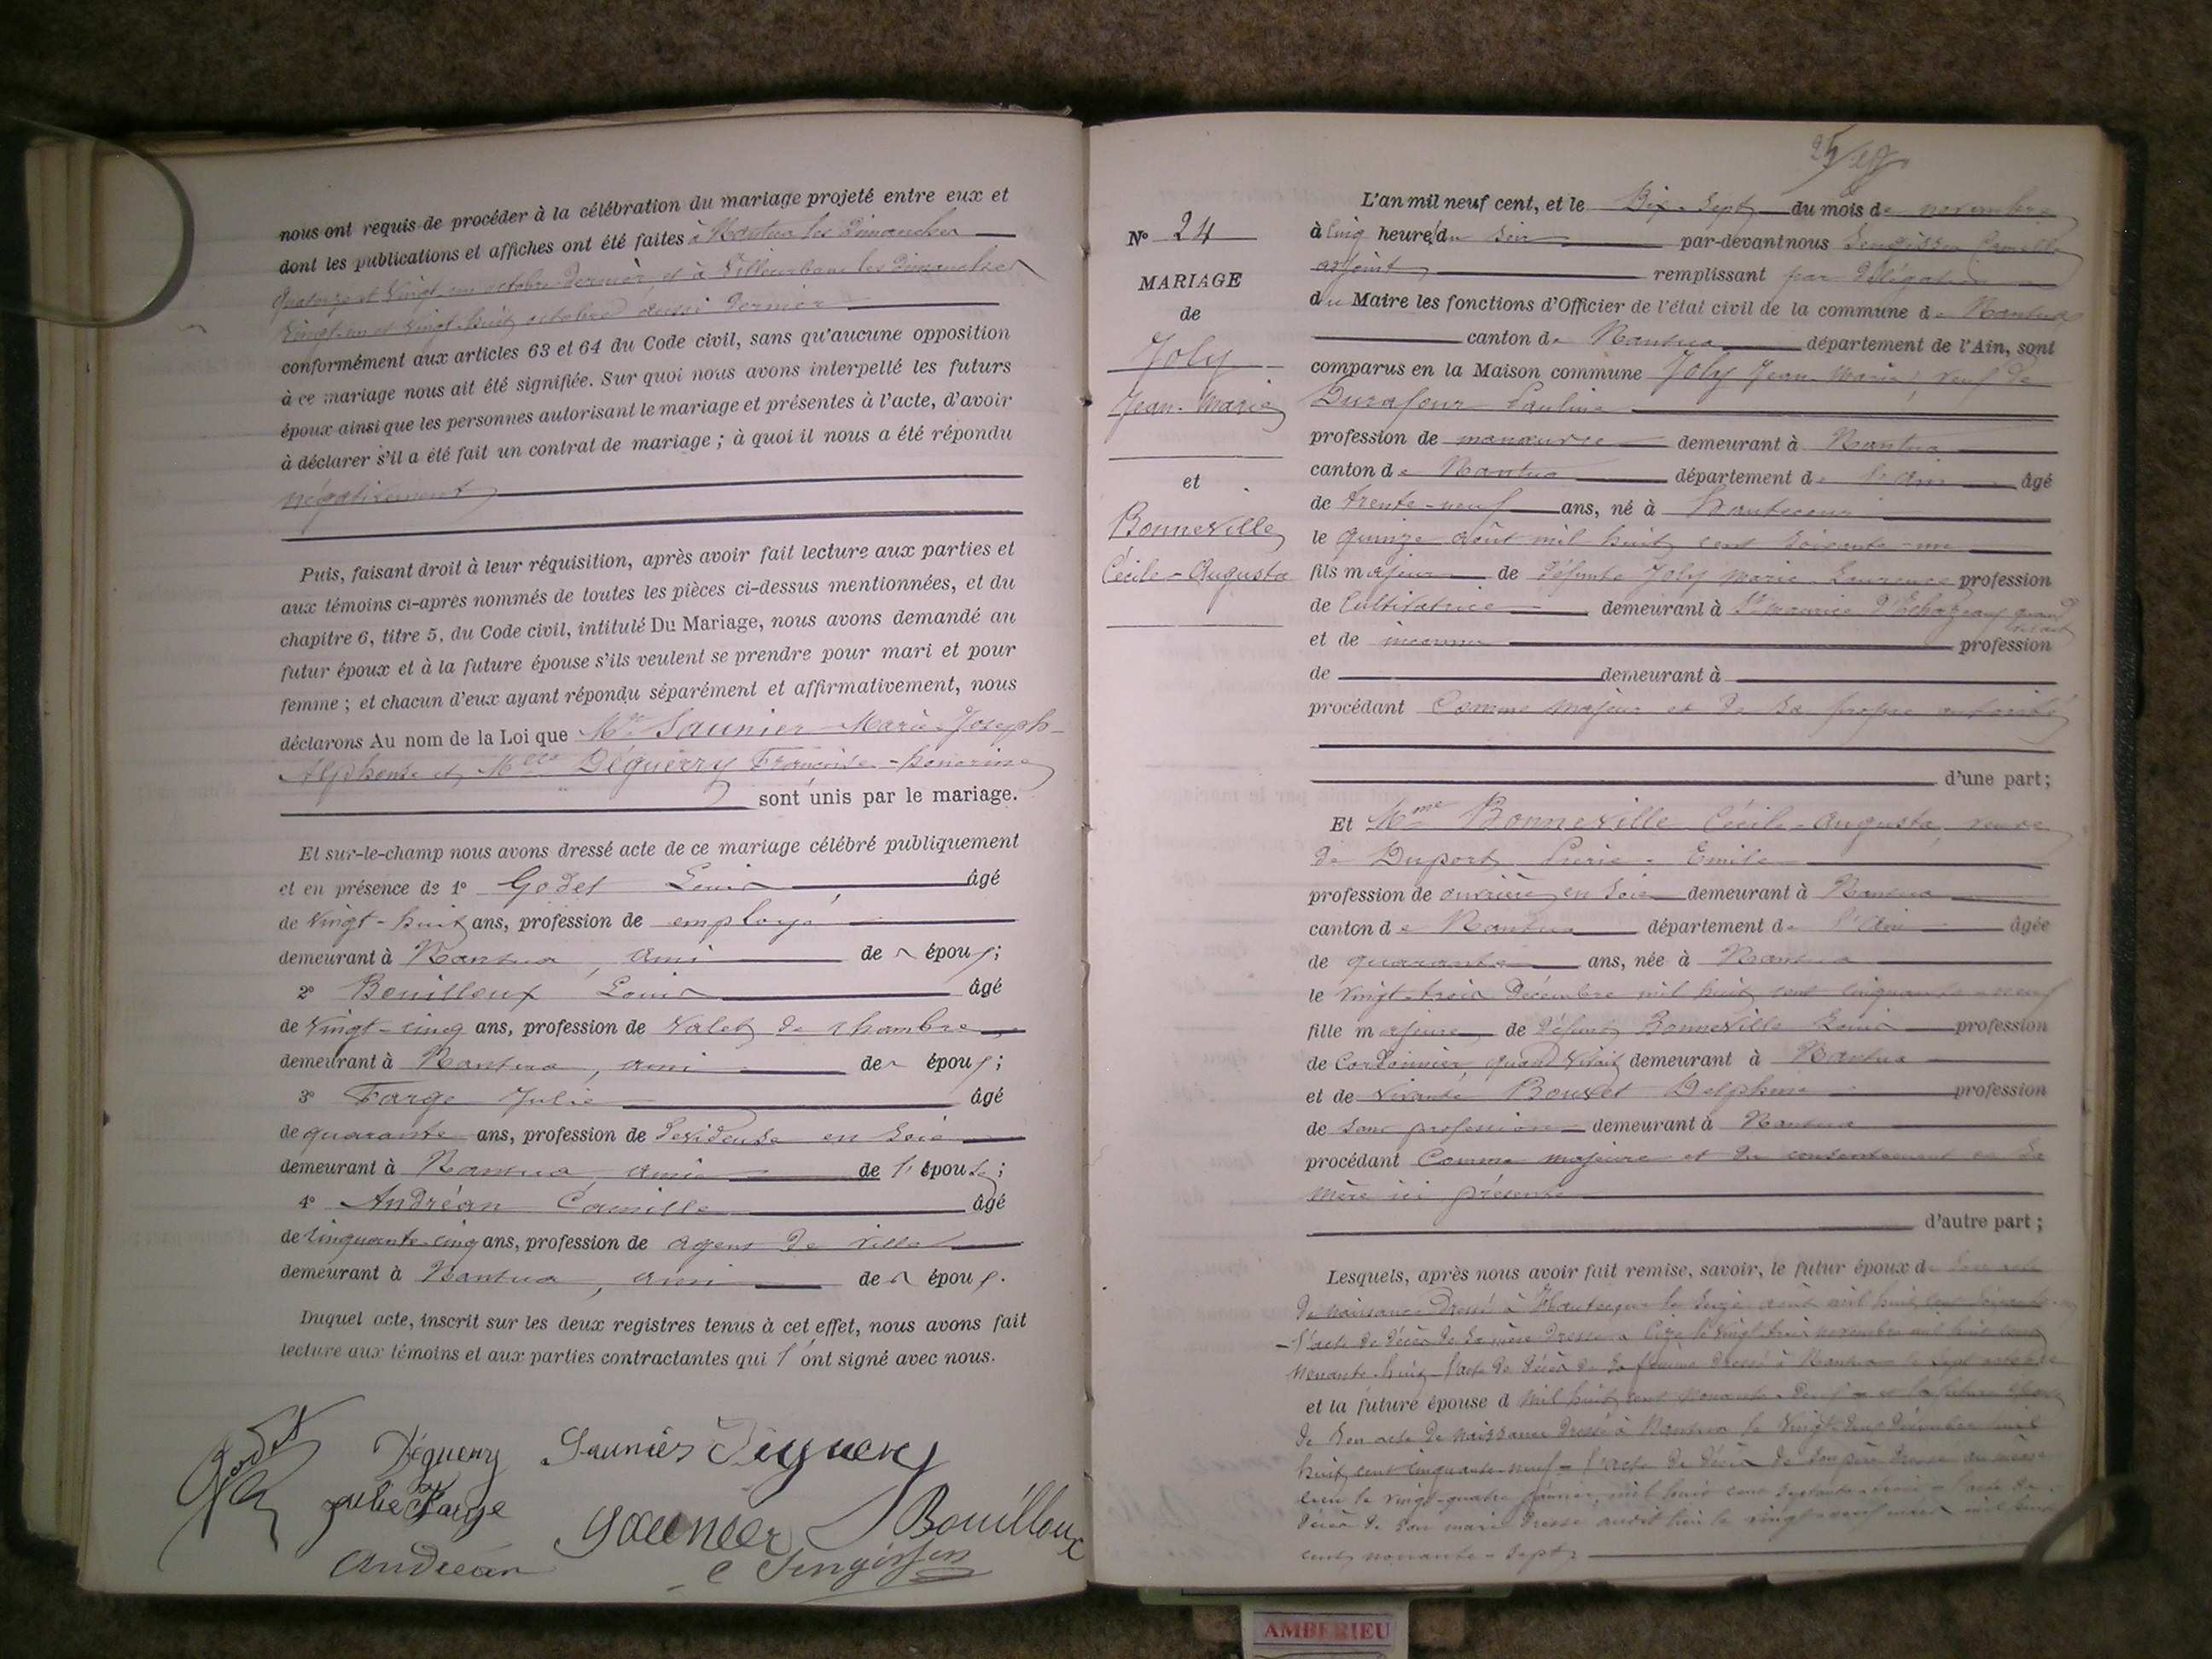 nous ont requis de procéder à la célébration du mariage projeté entre eux et
dont les publications et affiches ont été faites à Nantua les Dimanches
quatorze et vingt-un octobre dernier, et à Villeurbane les dimanches
vingt-un et vingt-huit octobre aussi dernier
conformément aux articles 63 et 64 du Code civil, sans qu'aucune opposition
à ce mariage nous ait été signifiée. Sur quoi nous avons interpellé les futurs
époux ainsi que les personnes autorisant le mariage et présentes à l'acte, d'avoir
à déclarer s'il a été fait un contrat de mariage ; à quoi il nous a été répondu
négativement
Puis, faisant droit à leur réquisition, après avoir fait lecture aux parties et
aux témoins ci-après nommés de toutes les pièces ci-dessus mentionnées, et du
chapitre 6, titre 5, du Code civil, intitulé Du Mariage, nous avons demandé au
futur époux et à la future épouse s'ils veulent se prendre pour mari et pour
femme ; et chacun d'eux ayant répondu séparément et affirmativement, nous
déclarons Au nom de la Loi que Mr Saunier Marie-Joseph-
Alphonse et Melle Déguerry Françoise-honorine
sont unis par le mariage.
Et sur-le-champ nous avons dressé acte de ce mariage célébré publiquement
et en présence de 1° Godet Louis âgé
de vingt-huit ans, profession de employé
demeurant à Nantua, ami de s époux ;
2° Bouilloux Louis âgé
de vingt-cinq ans, profession de valet de chambre
demeurant à Nantua, ami des époux ;
3° Farge Julie âgé
de quarante ans, profession de dévideuse en soie
demeurant à Nantua, amie de l'épouse ;
4° Andréan Camille âgé
de cinquante-cinq ans, profession de agent de ville
demeurant à Nantua, ami des époux.
Duquel acte, inscrit sur les deux registres tenus à cet effet, nous avons fait
lecture aux témoins et aux parties contractantes qui l'ont signé avec nous.
Godet Déguerry Saunier Déguerry
Julie Farge
Saunier Bouilloux
Andréan
N° 24
MARIAGE
de
Joly
Jean-Marie
et
Bonneville
Cécile-Augusta
L'an mil neuf cent, et le Dix-sept du mois de novembre
à cinq heures du soir par-devant nous
adjoint remplissant par délégation
du Maire les fonctions d'Officier de l'état civil de la commune de Nantua
canton de Nantua département de l'Ain, sont
comparus en la Maison commune Joly Jean-Marie, veuf de
Durafour Pauline
profession de manœuvre demeurant à Nantua
canton de Nantua département de l'Ain âgé
de trente-neuf ans, né à Hautecour
le quinze août mil huit cent soixante-un
fils majeur de défunte Joly Marie-Laurence profession
de Cultivatrice demeurant à St Maurice d'Echazeaux quand vivait
et de inconnu profession
de demeurant à
procédant Comme majeur et de sa propre autorité
d'une part ;
Et Mme Bonneville Cécile-Augusta, veuve
de Duport Emile
profession de ouvrière en soie demeurant à Nantua
canton de Nantua département de l'Ain âgée
de quarante ans, née à Nantua
le vingt-trois Décembre mil huit cent cinquante-neuf
fille majeure de défunt Bonneville Louis profession
de Cordonnier, quand vivait demeurant à Nantua
et de vivante Bouvet Delphine profession
de sans profession demeurant à Nantua
procédant Comme majeure et du consentement de sa
mère ici présente
d'autre part ;
Lesquels, après nous avoir fait remise, savoir, le futur époux de son acte
de naissance dressé à Hautecour le seize août mil huit cent soixante-un
- l'acte de décès de sa mère dressé à Cize le vingt-trois novembre mil huit cent
nonante-huit - l'acte de décès de sa femme dressé à Nantua le sept octobre
et la future épouse d mil huit cent nonante-neuf - et la future épouse
de son acte de naissance dressé à Nantua le vingt-deux Décembre mil
huit cent cinquante-neuf - l'acte de décès de son père dressé au même
lieu le vingt-quatre janvier mil huit cent septante-trois - l'acte de
décès de son mari dressé audit lieu le vingt-neuf mars mil huit
cent nonante-sept
AMBERIEU